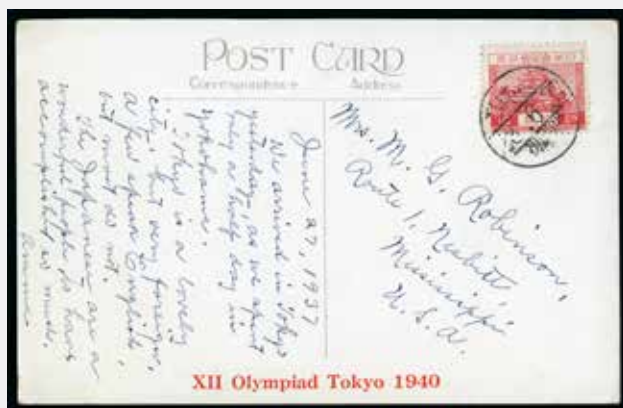 POST CARD
Correspondence
Address
June 27, 1937
We arrived in Tokyo
yesterday, as we spent
only a half day in
Yokohama.
Tokyo is a lovely
city, but very foreign,
a few speak English,
but most do not.
The Japanese are a
wonderful people to have
accomplished so much.
Mrs. M. G. Robinson,
Route 1, Nesbitt,
Mississippi
U. S. A.
XII Olympiad Tokyo 1940